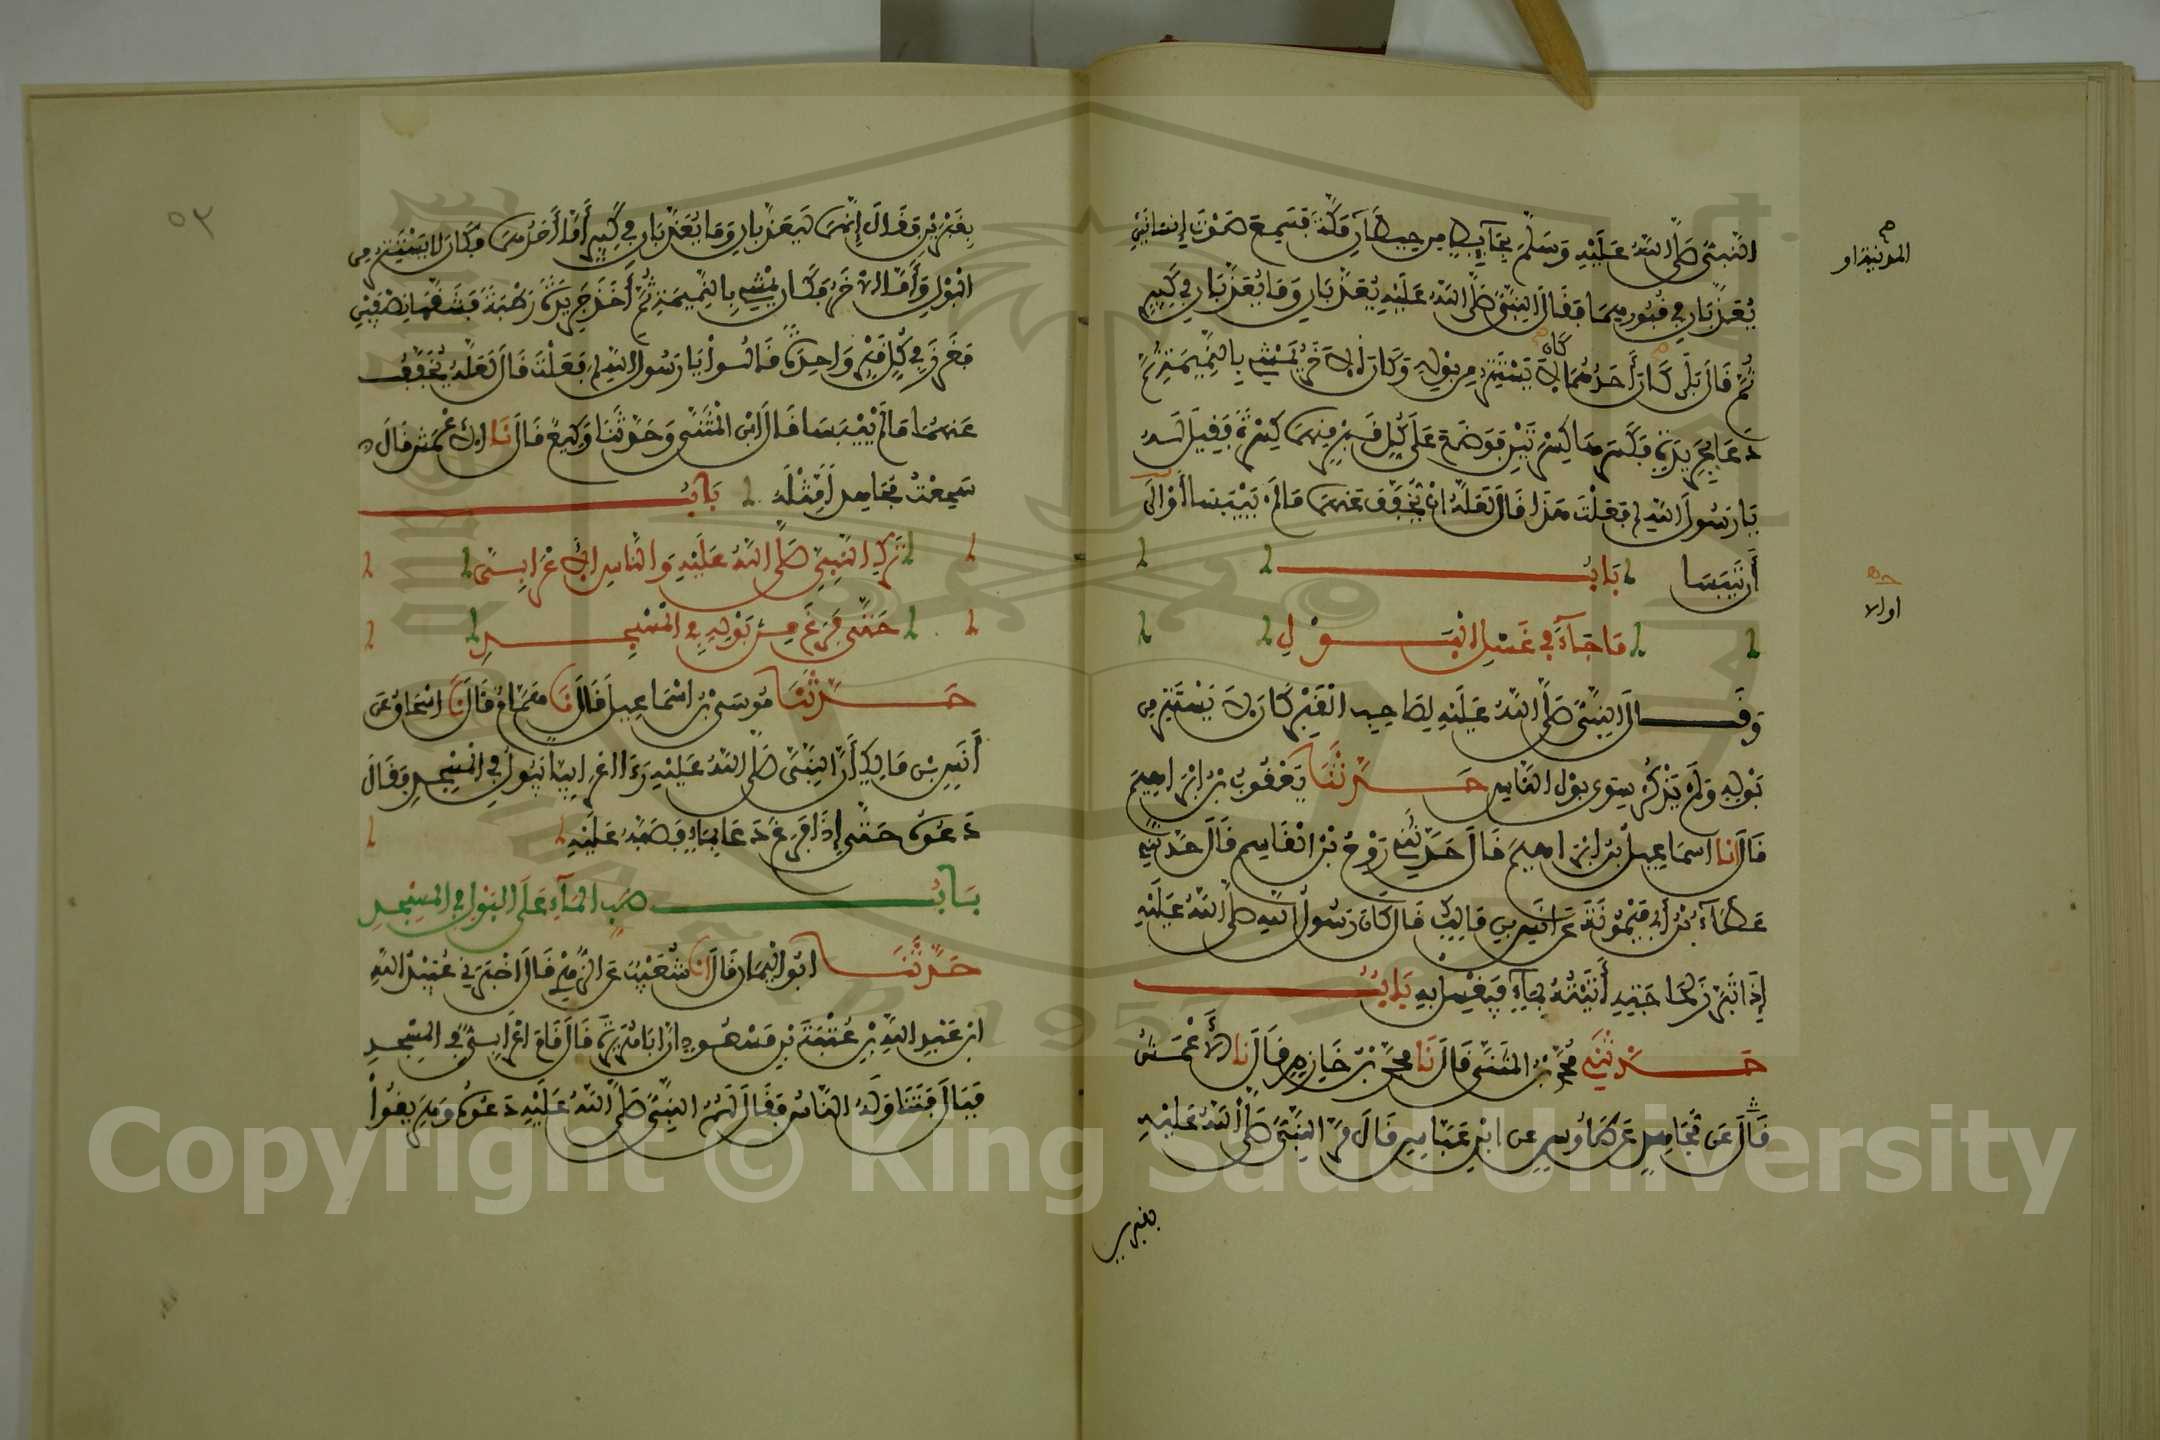 النبي صلى الله عليه وسلم بحايط من حيطان مكة فسمع صوت إنسانين
يعذبان في قبورهما فقال النبي صلى الله عليه يعذبان وما يعذبان في كبير
ثم قال بلى كان أحدهما لا يستتر من بوله وكان الاخر يمشي بالنميمة ثم
كان
دعا بجريدة فكسرها كسرتين فوضع على كل قبر منهما كسرة فقيل له
يا رسول الله لم فعلت هذا قال لعله ان يخفف عنهما ما لم ييبسا أو الى
أن ييبسا باب
ما جاء في غسل البول
وقال النبي صلى الله عليه لصاحب القبر كان لا يستتر من
بوله ولم يذكر سوى بول الناس حدثنا يعقوب بن ابراهيم
قال انا اسماعيل بن ابراهيم قال حدثني روح بن القاسم قال حدثني
عطاء بن أبي ميمونة عن انس بن مالك قال كان رسول الله صلى الله عليه
إذا تبرز لحاجته أتيته بماء فيغسل به باب
حدثني محمد بن المثنى قال نا محمد بن خازم قال نا الأعمش
قال عن مجاهد عن طاوس عن ابن عباس قال مر النبي صلى الله عليه
بقبرين
المدينة او
او الا
٥٢
بقبرين فقال إنهما ليعذبان وما يعذبان في كبير أما أحدهما فكان لا يستتر من
البول وأما الاخر فكان يمشي بالنميمة ثم أخذ جريدة رطبة فشقها نصفين
فغرز في كل قبر واحدة قالوا يا رسول الله لم فعلت قال لعله يخفف
عنهما ما لم ييبسا قال ابن المثنى وحدثنا وكيع قال نا الاعمش قال
سمعت مجاهدا مثله باب
ترك النبي صلى الله عليه والناس الأعرابي
حتى فرغ من بوله في المسجد
حدثنا موسى بن اسماعيل قال نا همام قال نا اسحاق عن
أنس بن مالك أن النبي صلى الله عليه رءا اعرابيا يبول في المسجد فقال
دعوه حتى إذا فرغ دعا بماء فصبه عليه
باب صب الماء على البول في المسجد
حدثنا ابو اليمان قال انا شعيب عن الزهري قال اخبرني عبيد الله
ابن عبد الله بن عتبة بن مسعود ان ابا هريرة قال قام اعرابي في المسجد
فبال فتناوله الناس فقال لهم النبي صلى الله عليه دعوه وهريقوا
Copyright © King Saud University
1957